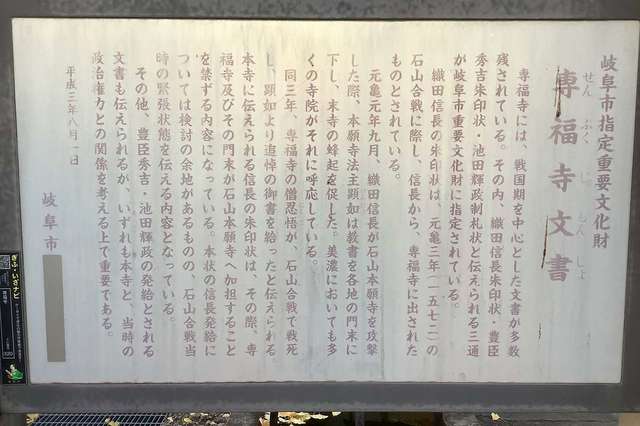 岐阜市指定重要文化財
専福寺文書
せんぷくじもんじょ
専福寺には、戦国期を中心とした文書が多数
残されている。その内、織田信長朱印状・豊臣
秀吉朱印状・池田輝政制札状と伝えられる三通
が岐阜市重要文化財に指定されている。
織田信長の朱印状は、元亀三年(一五七二)の
石山合戦に際し、信長から、専福寺に出された
ものとされている。
元亀元年九月、織田信長が石山本願寺を攻撃
した際、本願寺法主顕如は教書を各地の門末に
下し、末寺の蜂起を促した。美濃においても多
くの寺院がそれに呼応している。
同三年、専福寺の僧忍悟が、石山合戦で戦死
し、顕如より追悼の御書を給ったと伝えられる。
本寺に伝えられる信長の朱印状は、その際、専
福寺及びその門末が石山本願寺へ加担すること
を禁ずる内容になっている。本状の信長発給に
ついては検討の余地があるものの、石山合戦当
時の緊張状態を伝える内容となっている。
その他、豊臣秀吉・池田輝政の発給とされる
文書も伝えられるが、いずれも本寺と、当時の
政治権力との関係を考える上で重要である。
平成三年八月一日
岐阜市
ぎふ・いざナビ